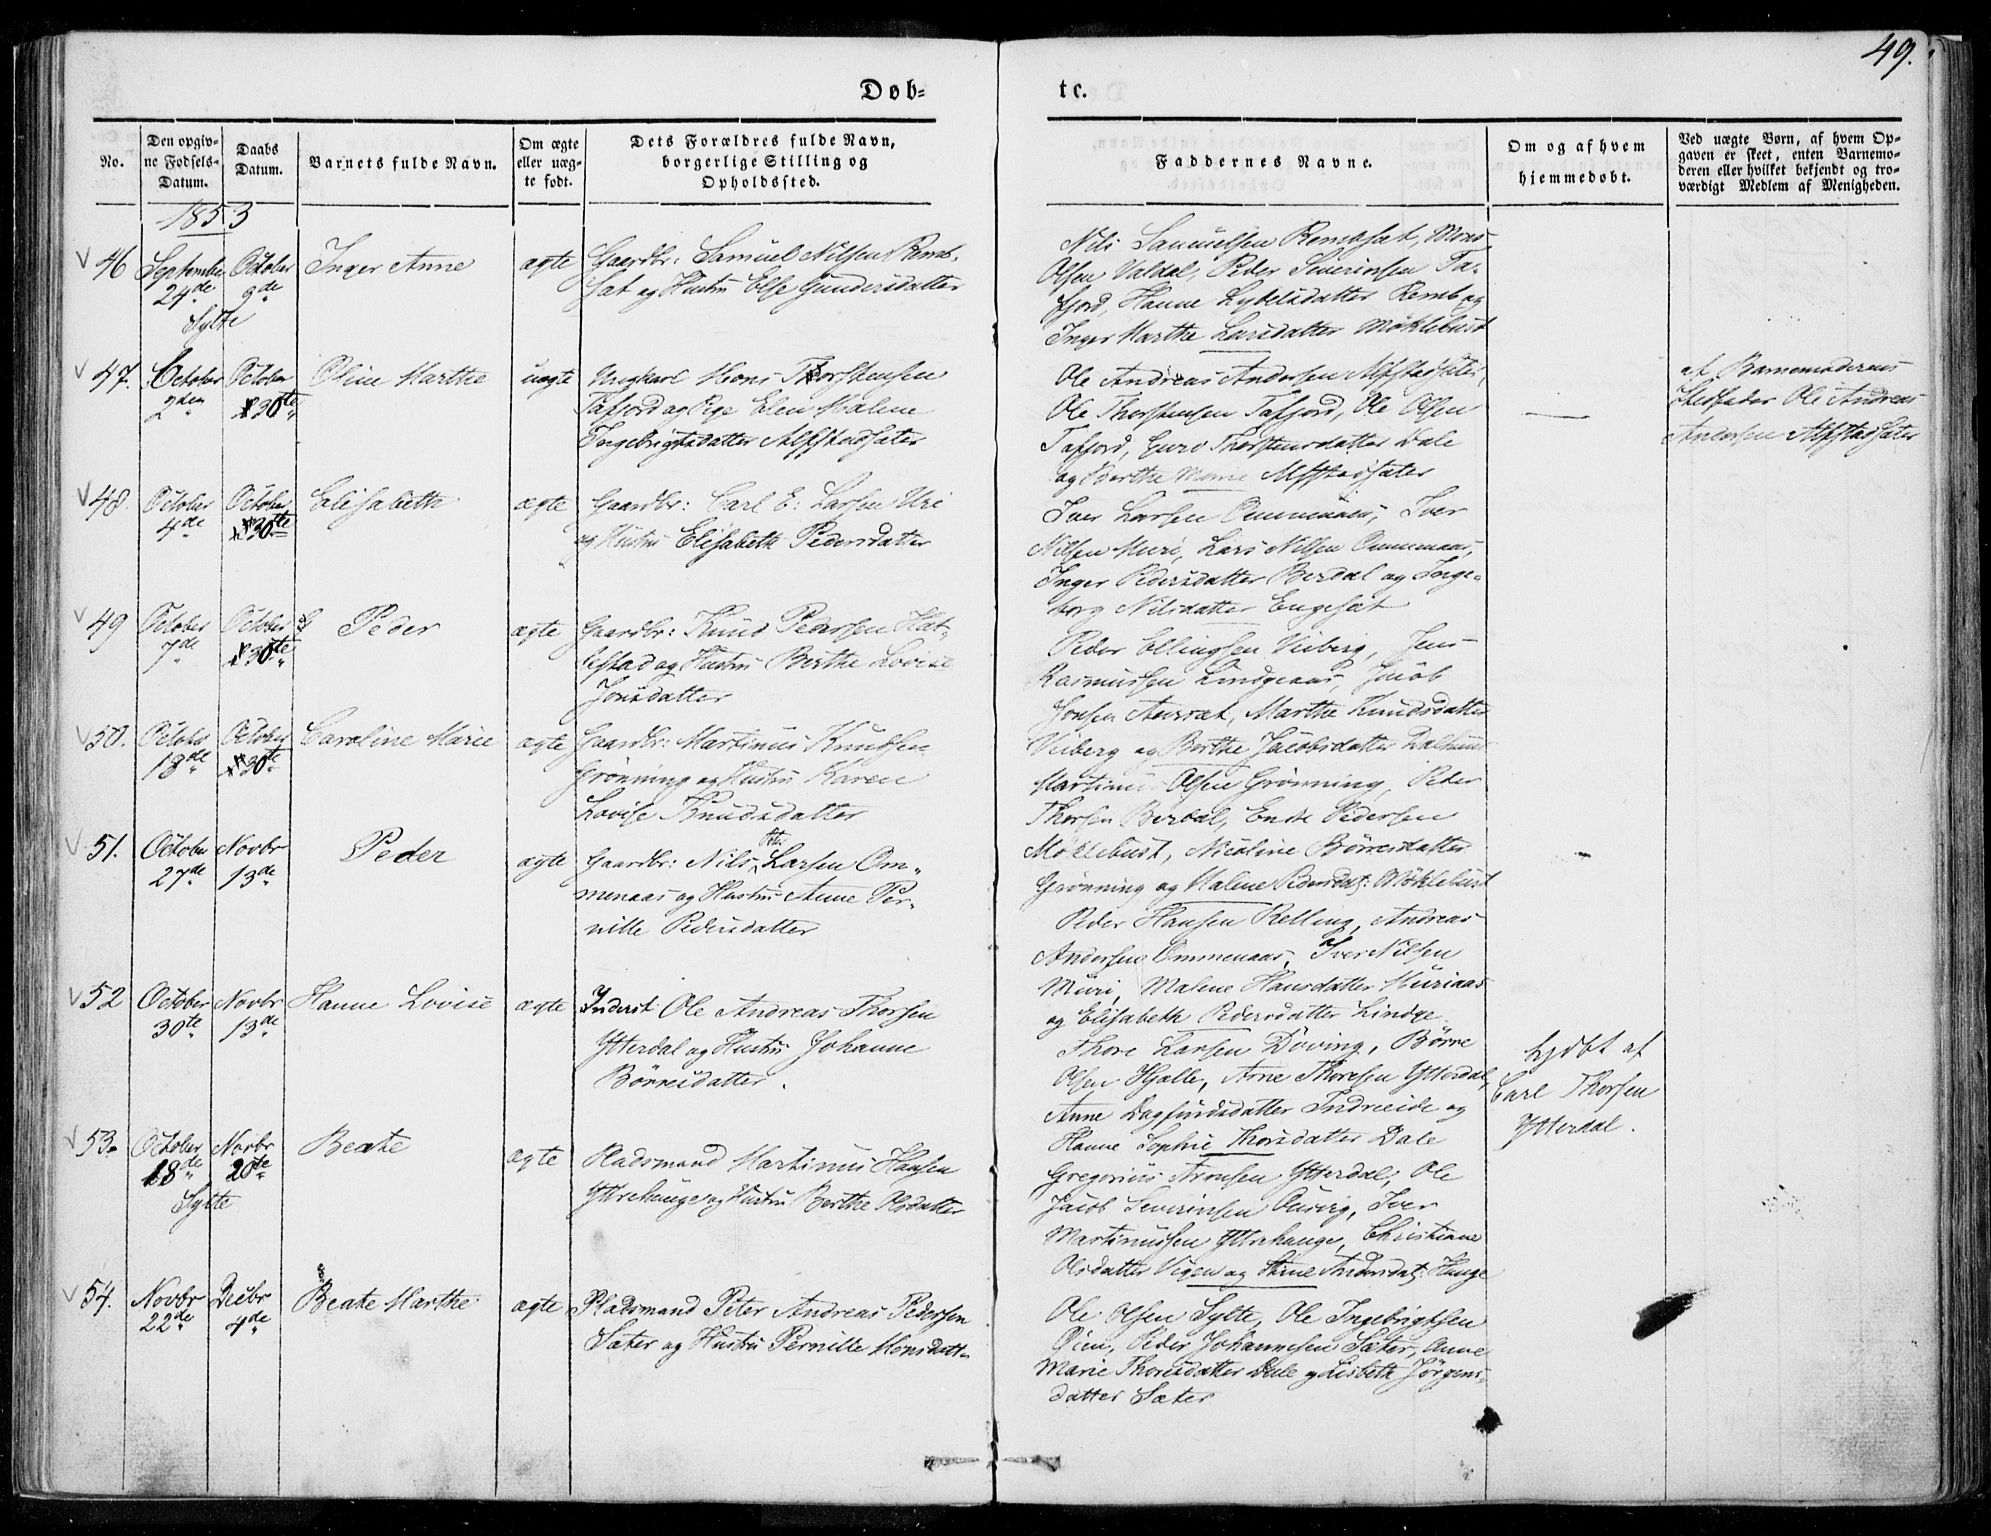 49.
Døb-
te.
No.
Den opgiv-
ne Fødsels-
Datum.
Daabs
Datum.
Barnets fulde Navn.
Om ægte
eller uæg-
te født.
Dets Forældres fulde Navn,
borgerlige Stilling og
Opholdssted.
Faddernes Navne.
Om og af hvem
hjemmedøbt.
Ved uægte Børn, af hvem Op-
gaven er skeet, enten Barnemo-
deren eller hvilket bekjendt og tro-
værdigt Medlem af Menigheden.
1853
46 September 24de October 9de
Sylte
Inger Anne
ægte
Gaardbr: Samuel Nilsen Remb-
sæt og Hustru Else Gundersdatter
Nils Samuelsen Rembsæt, Mons
Olsen Valdal, Peder Severinsen Ta-
fjord, Hanne Lykelsdatter Remb og
Inger Marthe Larsdatter Möklebust
47. October 2den October 30te
Oline Marthe
uægte
Ungkarl Mons Thorstensen
Tafjord og Pige Elen Malene
Ingebrigtsdatter Alfstadsæter
Ole Andreas Andersen Alfstadsæter,
Ole Thorstensen Tafjord, Ole Olsen
Tafjord, Guro Thorstensdatter Dale
og Berthe Marie Alfstadsæter
af Barnemoderens
Stedfader Ole Andreas
Andersen Alfstadsæter
48. October 4de October 30te
Elisabeth
ægte
Gaardbr: Carl E: Larsen Uri
og Hustru Elisabeth Pedersdatter
Iver Larsen Ommenaas, Iver
Nilsen Muri, Lars Nilsen Ommenaas,
Inger Pedersdatter Berdal og Inge-
borg Nilsdatter Engesæt
49 October 7de October 30te
Peder
ægte
Gaardbr: Knud Pedersen Hat-
lestad og Hustru Berthe Lovise
Jonsdatter
Peder Ellingsen Viiberg, Jens
Rasmussen Lindgeaas, Jacob
Jonsen Aurræt, Marthe Knudsdatter
Viiberg og Berthe Jacobsdatter Dalhuus
50. October 18de October 30te
Caroline Marie
ægte
Gaardbr: Martinus Knudsen
Grönning og Hustru Karen
Lovise Knudsdatter
Martinus Olsen Grönning, Peder
Thorsen Berdal, Ende Pedersen
Möklebust, Nicoline Börresdatter
Grönning og Malene Pedersdat: Möklebust
51. October 27de Novbr 13de
Peder
ægte
Gaardbr: Nils Larsen Om-
menaas og Hustru Anne Per-
nille Pedersdatter
Peder Hansen Relling, Andreas
Andersen Ommenaas, Iver Nilsen
Muri, Malene Hansdatter Muriaas
og Elisabeth Pedersdatter Lindge.
52 October 30te Novbr 13de
Hanne Lovise
ægte
Inderst Ole Andreas Thorsen
Ytterdal og Hustru Johanne
Börresdatter.
Thore Larsen Döving, Börre
Olsen Hjælle, Arne Thoresen Ytterdal,
Anne Dagfindsdatter Indreeide og
Hanne Sophie Thorsdatter Dale
hjdbt af
Carl Thorsen
Ytterdal.
53. October 18de Novbr 20de
Sylte
Beate
ægte
Pladsmand Martinus Hansen
Yttrehauge og Hustru Berthe Olsdatter
Gregorius Aronsen Ytterdal, Ole
Jacob Severinsen Outvig, Iver
Martinussen Yttrehauge, Christianne
Olsdatter Vigen og Stine Andersdat: Hauge
54. Novbr 22de Decbr 4de
Beate Marthe
ægte
Pladsmand Peter Andreas Pedersen
Sæter og Hustru Pernille Monsdatt
Ole Olsen Sylte, Ole Ingebrigtsen
Öien, Peder Johannesen Sæter, Anne
Marie Thorsdatter Dale og Lisbeth Jörgens-
datter Sæter